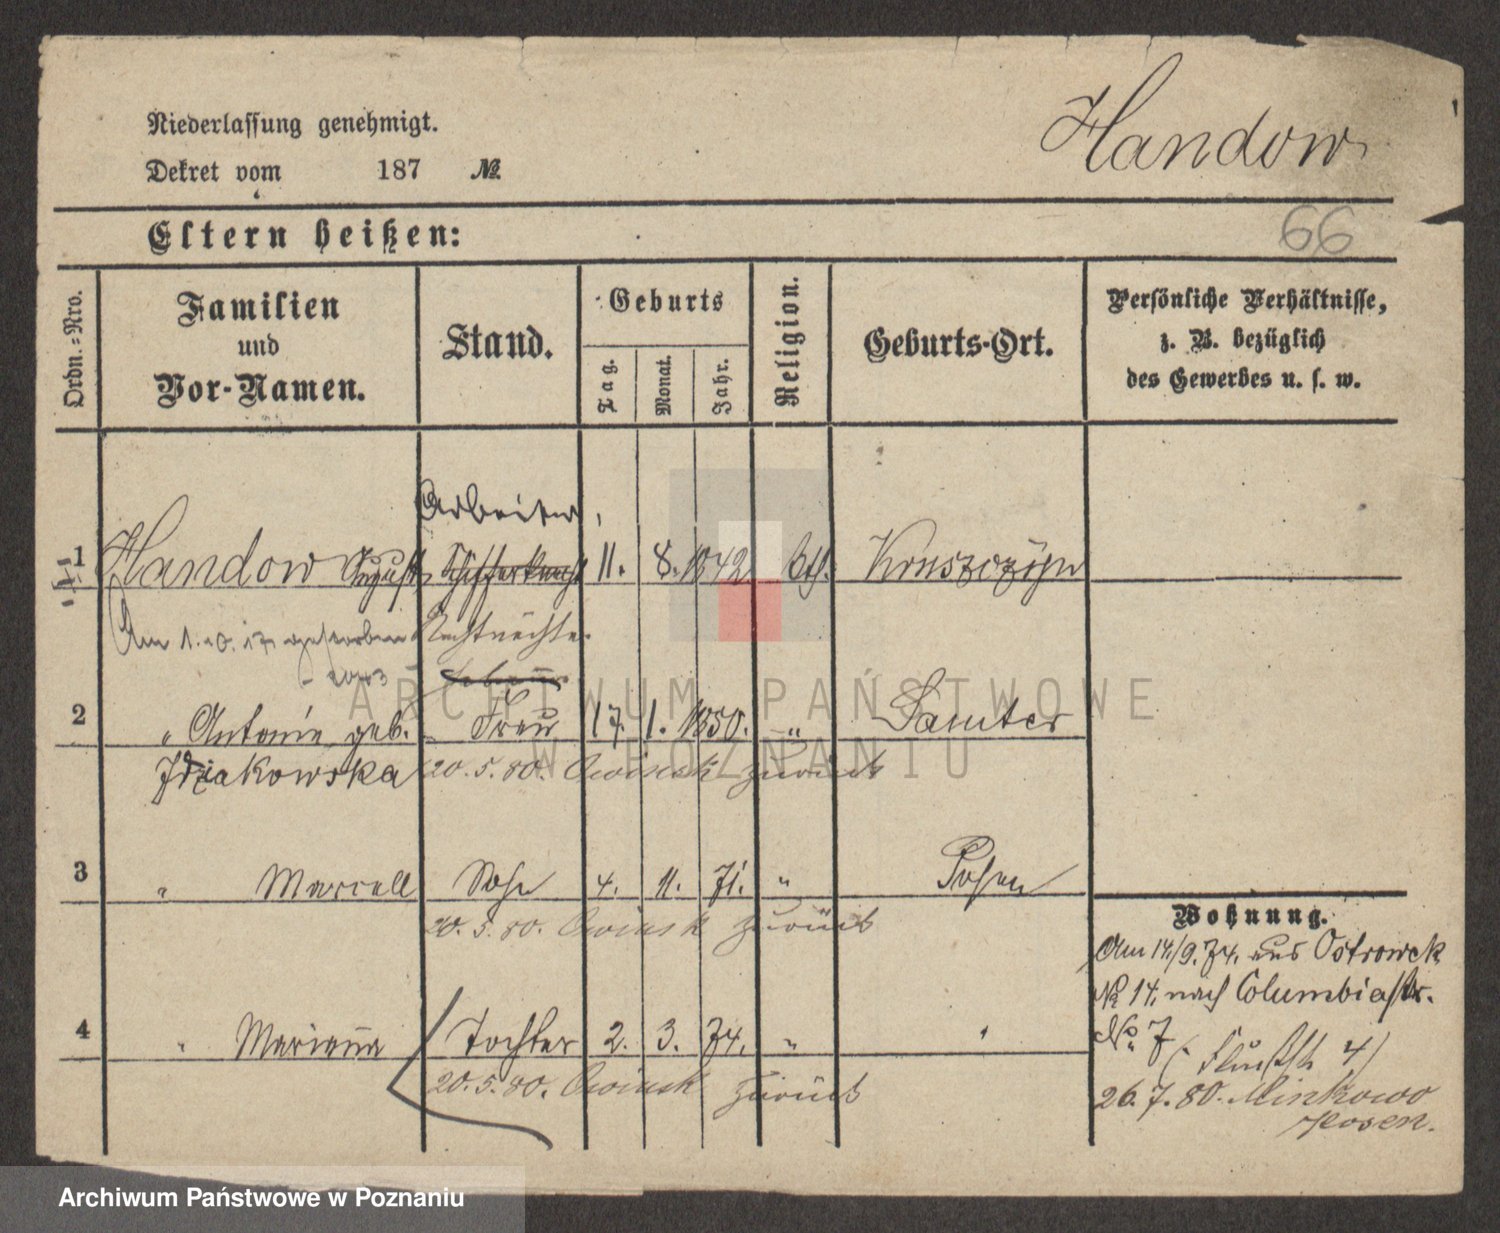 Handow
Niederlassung genehmigt.
Dekret vom 187 №
66
Eltern heißen:
Ordn.-Nro.
Familien
und
Vor-Namen.
Stand.
Geburts
Tag.
Monat.
Jahr.
Religion.
Geburts-Ort.
Persönliche Verhältnisse,
z. B. bezüglich
des Gewerbes u. s. w.
Arbeiter,
1 Handow August 11. 8. 1842 kth.
Am 1. 10. 17 gestorben
2 " Antonie geb. Frau 17. 1. 1850. " Samter
20. 5. 80. Owinsk zurück
3 " Marcell Sohn 4. 11. 71. " Posen
20. 5. 80. Owinsk zurück
4 " Marianna Tochter 2. 3. 74. " "
20. 5. 80. Owinsk zurück
Wohnung.
Am 14/9. 74. aus Ostrowek
№ 14. nach Columbiastr.
No 7
26. 7. 80. Minkowo
Posen.
ARCHIWUM PAŃSTWOWE
W POZNANIU
Archiwum Państwowe w Poznaniu